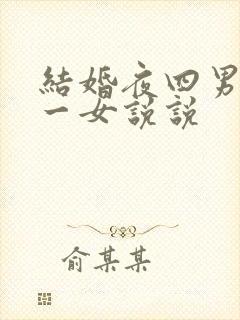 結婚夜四男
一女説説
俞某某